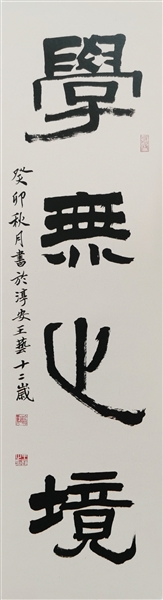 學無止境
癸卯秋月書於淳安王藝十二歲